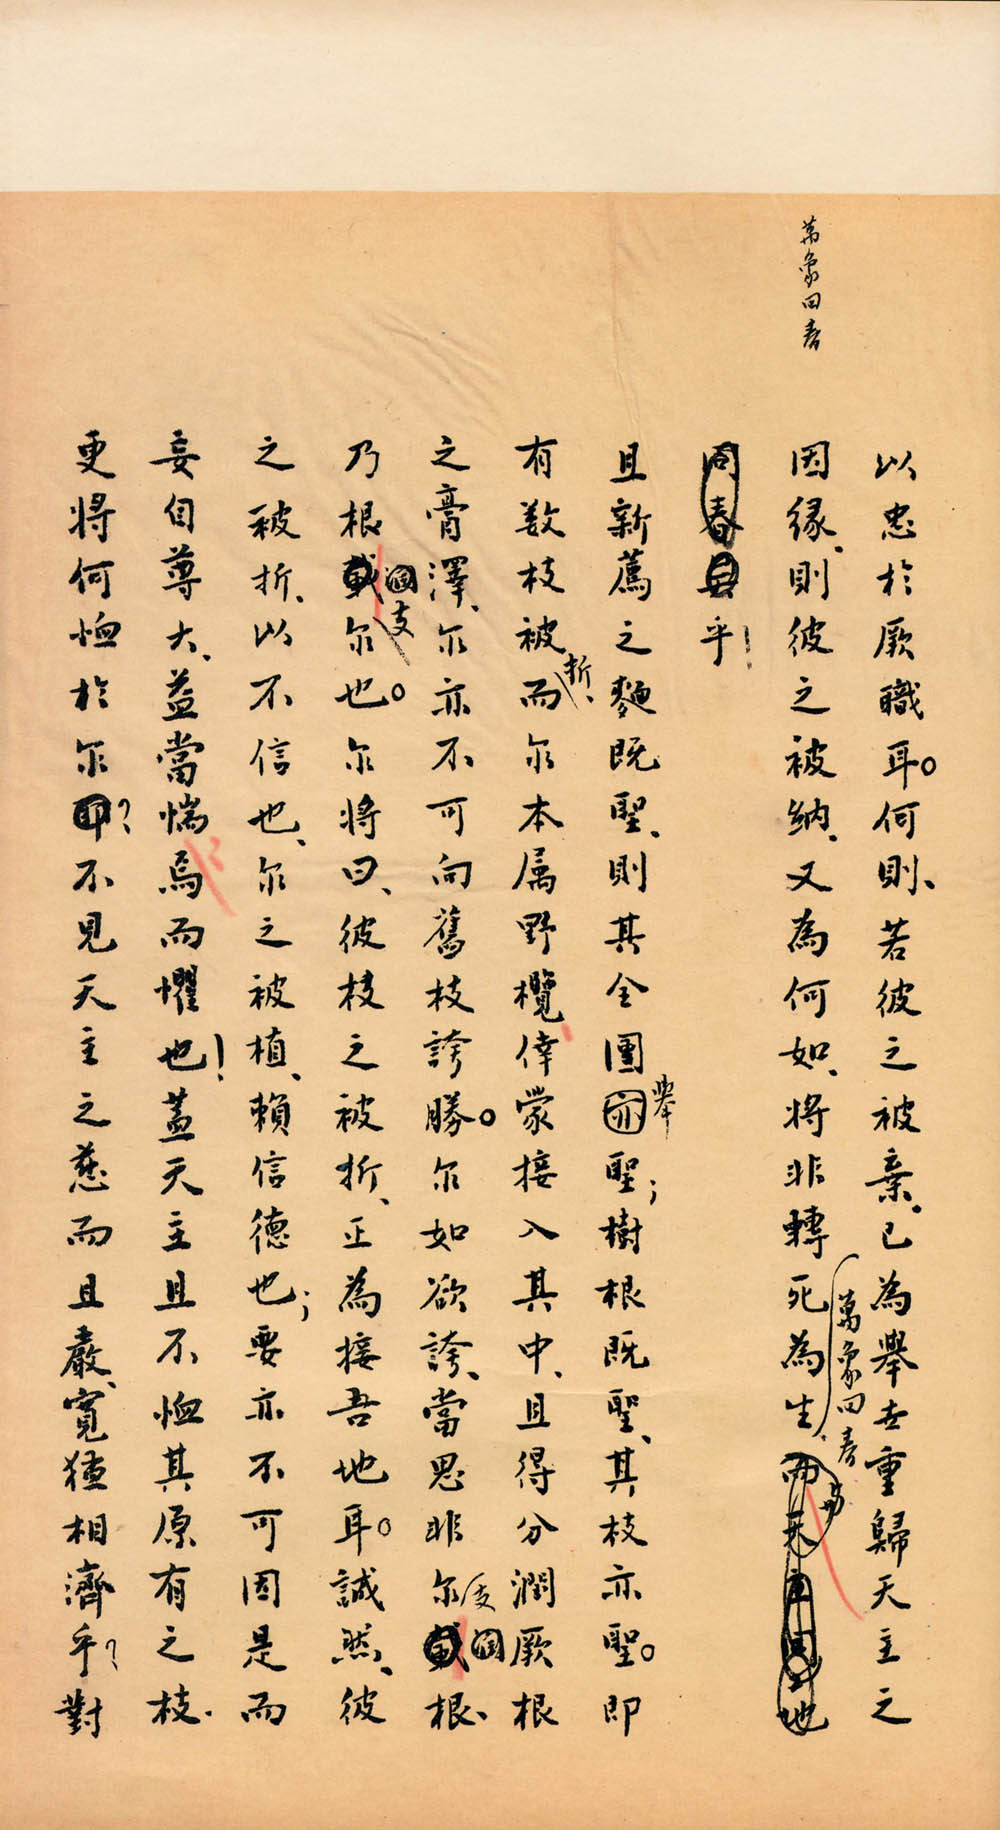 萬象回春
以忠於厥職耳。何則、若彼之被棄、已為舉世重歸天主之
因緣、則彼之被納、又為何如、將非轉死為生、萬象回春
乎！
且新薦之麵既聖、則其全團舉聖；樹根既聖、其枝亦聖。即
有数枝被折、而尔本属野欖、倖蒙接入其中、且得分潤厥根
之膏澤、尔亦不可向舊枝誇勝。尔如欲誇、當思非尔支根、
乃根支尔也。尔將曰、彼枝之被折、正為接吾地耳。誠然、彼
之被折、以不信也、尔之被植、賴信德也；要亦不可因是而
妄自尊大、益當惴焉而懼也！蓋天主且不恤其原有之枝、
更將何恤於尔？不見天主之慈而且嚴、寬猛相濟乎？對